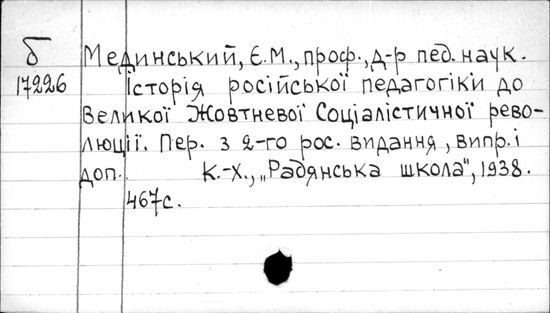 б
17226
Мединський, Є.М., проф., д-р пед. наук.
Історія російської педагогіки до
Великої Жовтневої Соціалістичної рево-
люції. Пер. з 2-го рос. видання, випр. і
доп. К.-Х., „Радянська школа", 1938.
467с.